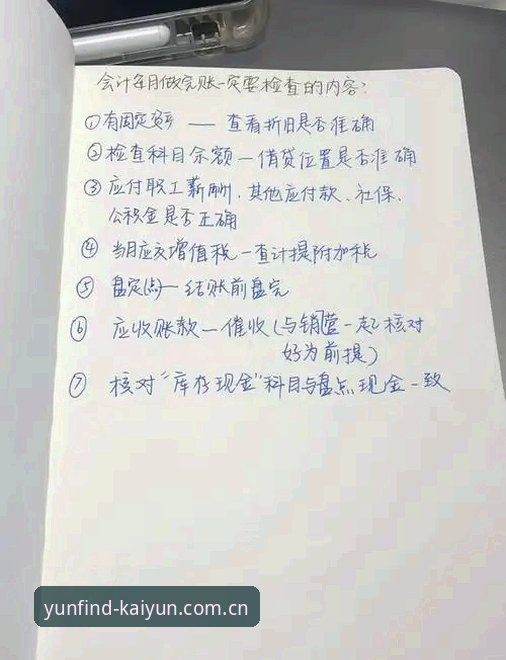 会计每月做完账一定要检查的内容?
①有固定资产 —— 查看折旧是否准确
②检查科目余额 — 借贷位置是否准确
③应付职工薪酬、其他应付款、社保、
公积金是否正确
④当月应交增值税 — 查计提附加税
⑤盘定(点) — 结账前盘完
⑥应收账款 — 催收(与销营一起核对
好为前提)
⑦核对“库存现金”科目与盘点现金一致
yunfind-kaiyun.com.cn